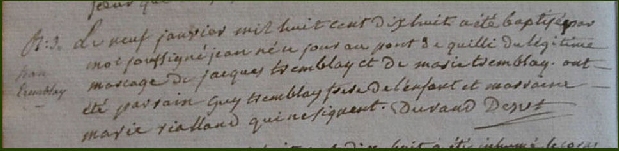 N: 3. Le neuf janvier mil huit cent dix huit a été baptisé par
moi soussigné jean né ce jour au pont de quilli du légitime
jean
mariage de jacques tremblay et de marie tremblay. ont
tremblay
été parrain guy tremblay frere de l'enfant et marraine
marie rialland qui ne signent. Durand